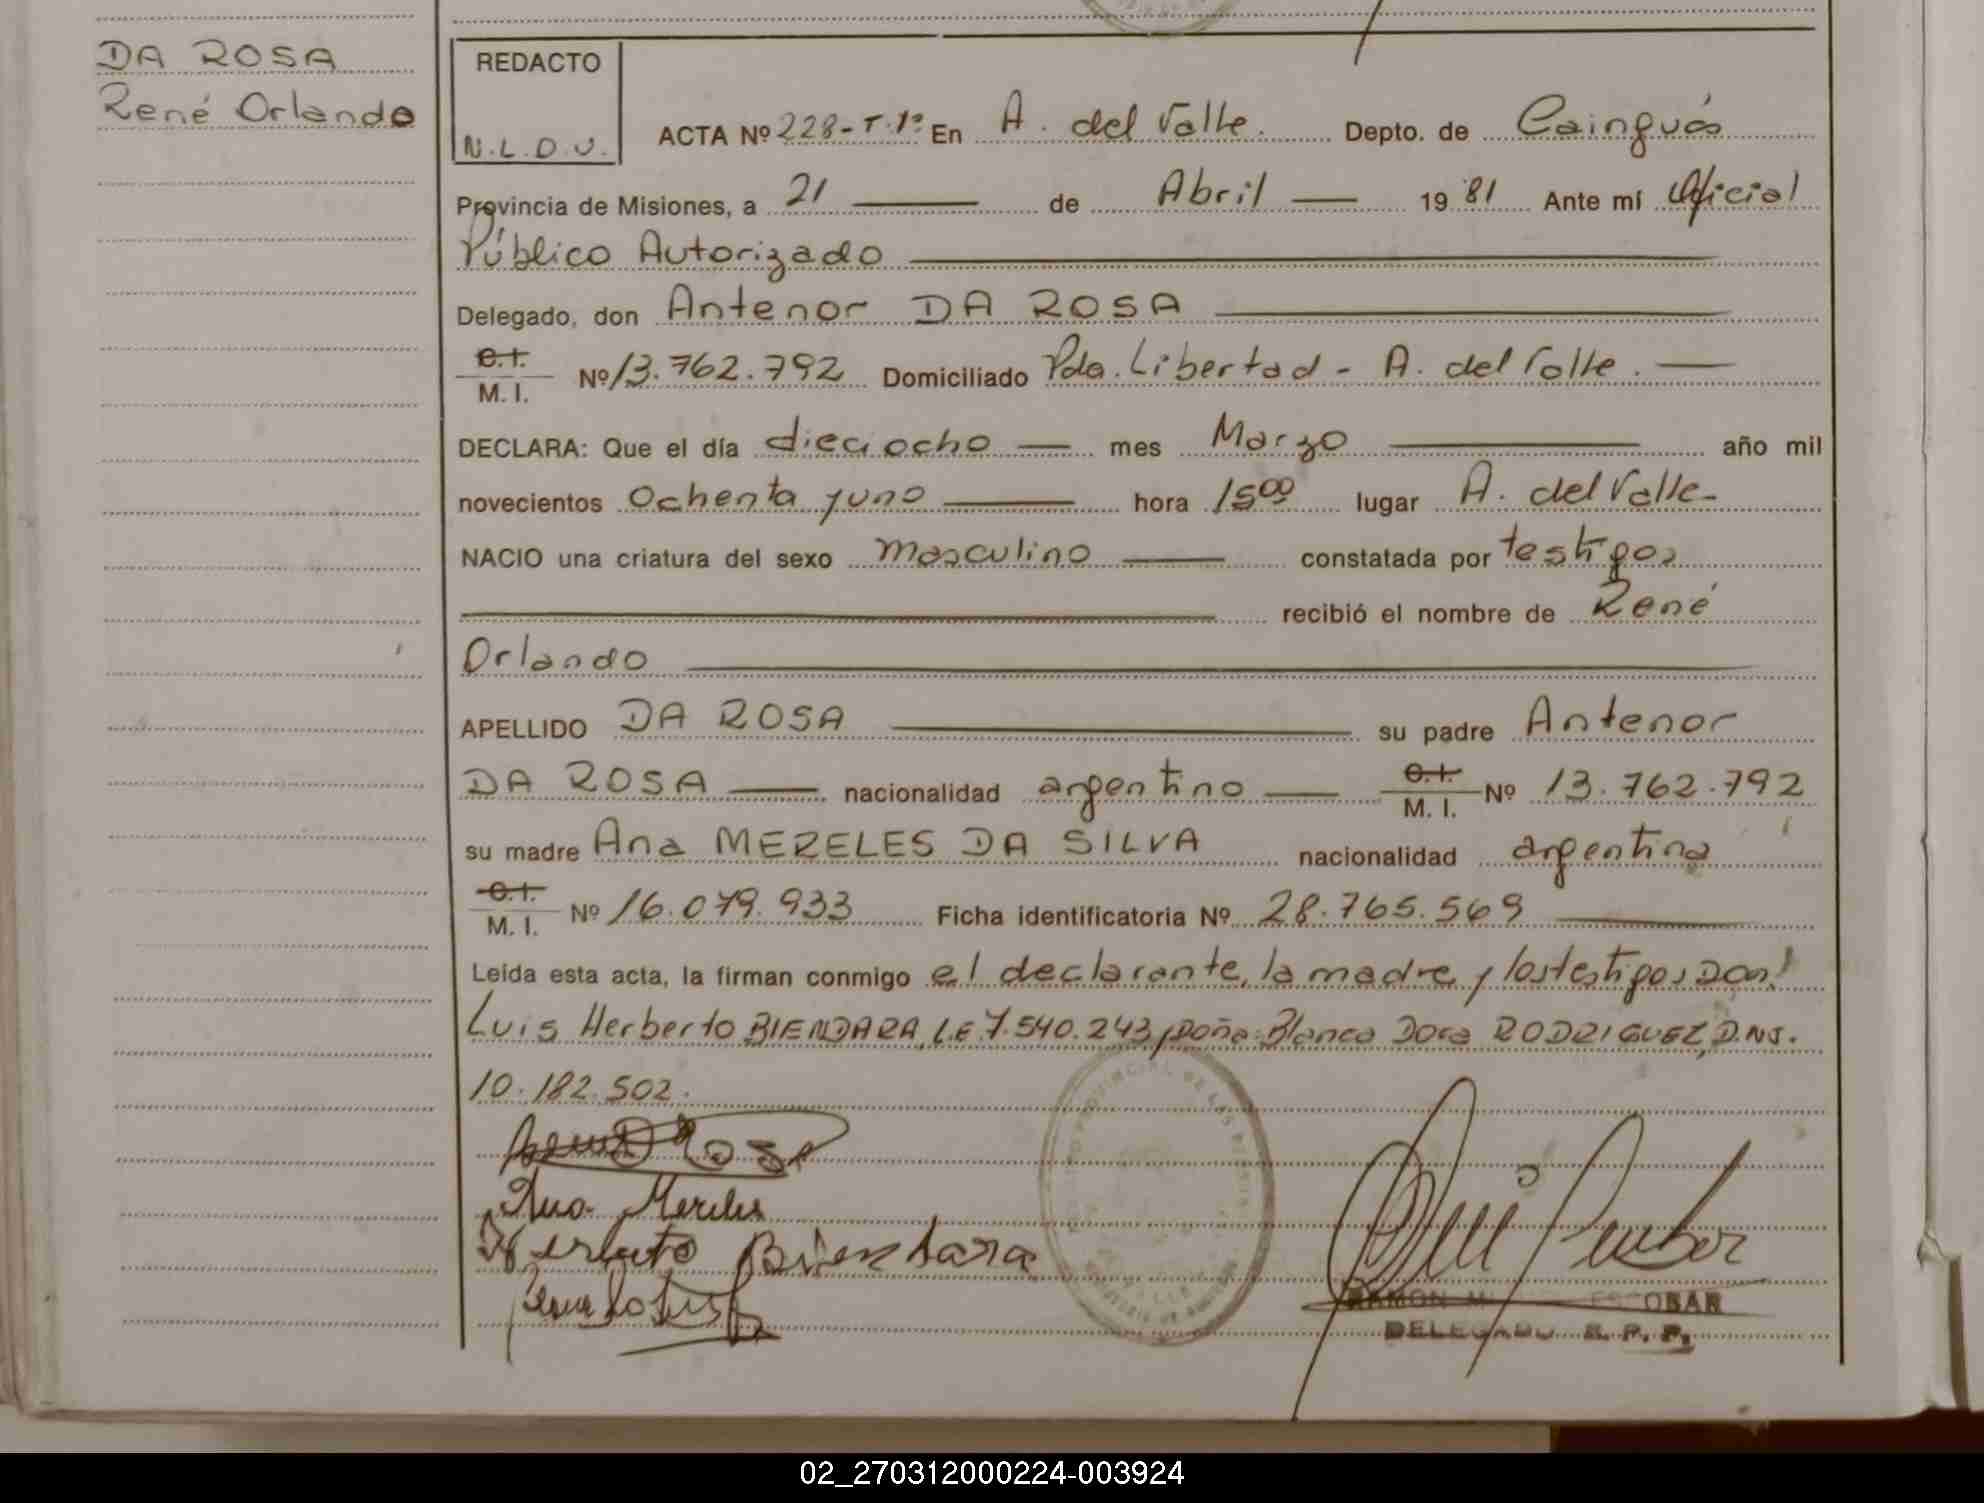 DA ROSA
René Orlando
REDACTO
N.L.D.V.
ACTA Nº 228-T.1º En A. del Valle. Depto. de Cainguás
Provincia de Misiones, a 21 de Abril 1981 Ante mí Oficial
Público Autorizado
Delegado, don Antenor DA ROSA
C.I.
M. I. Nº 13.762.792 Domiciliado Pda. Libertad - A. del Valle.
DECLARA: Que el día dieciocho mes Marzo año mil
novecientos Ochenta y uno hora 15⁰⁰ lugar A. del Valle-
NACIO una criatura del sexo masculino constatada por testigos
recibió el nombre de René
Orlando
APELLIDO DA ROSA su padre Antenor
DA ROSA nacionalidad argentino C.I.
M. I. Nº 13.762.792
su madre Ana MERELES DA SILVA nacionalidad argentina
C.I.
M. I. Nº 16.079.933 Ficha identificatoria Nº 28.765.569
Leída esta acta, la firman conmigo el declarante, la madre y los testigos Don:
Luis Herberto BIENDARA, L.E 7.540.243 y Doña: Blanca Dora RODRIGUEZ, D.N.I.
10.182.502.
Ana Mereles
Herberto Biendara
RAMON ESCOBAR
DELEGADO R. P. P.
02_270312000224-003924